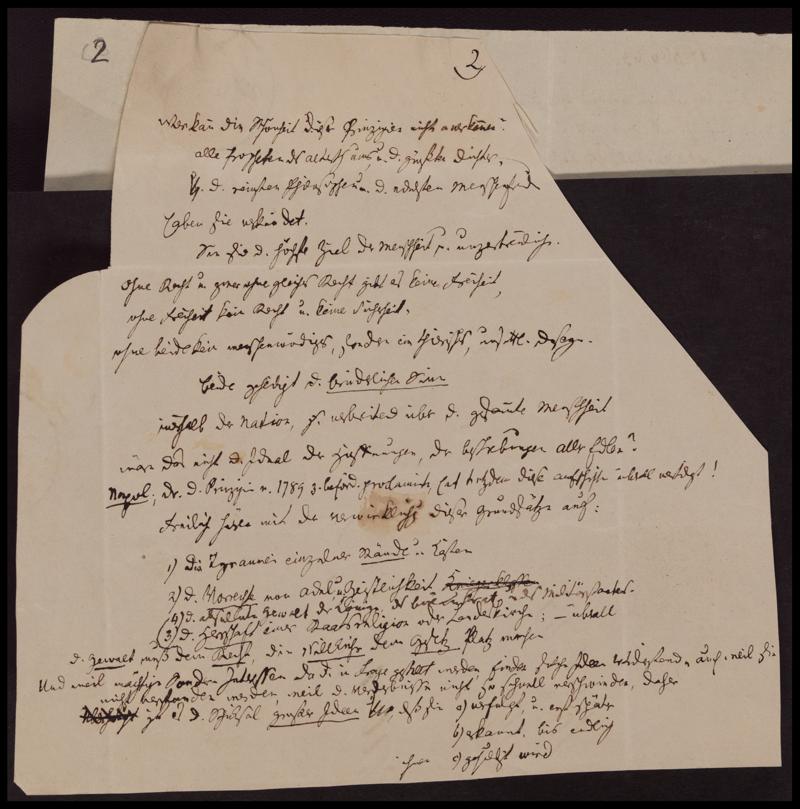 2 2
Wer kan die Schönheit dieser Prinzipien nicht anerkennen?
alle Propheten des altertums u. d. größten Dichter,
d. reinsten Philosophen u. d. edelsten Menschenfreunde
haben sie verkündet.
Sie sind d. höchste Ziel der Menschheit u. unzerstörlich.
ohne Recht u. zwar ohne gleiches Recht gibt es keine Freiheit,
ohne Freiheit kein Recht u. keine Sicherheit,
ohne beide kein menschenwürdiges, sondern ein thierisches, Dasein.
beide gesichert d. brüderlichen Sinn
innerhalb der Nation, u. verbreitet über d. gesamte Menschheit
wäre das nicht d. Ideal der Hoffnungen, der bestrebungen aller Edlen?
Napol., der d. Prinzipien v. 1789 z. beförd. proclamirte, hat trotzdem diese überall !
Freilich hörte mit der verwirklichung dieser Grundsätze auf:
1) Die Tyrannei einzelner Stände u. Kasten
2) d. Vorrechte von adel u. Geistlichkeit u. des Militärstaates.
(4) d. absolute Gewalt der Könige,
(3) d. Herrschaft einer Staatsreligion oder Landeskirche; – überall
d. Gewalt muß dem Recht, die Willkühr dem Gesetz Platz machen
Und weil mächtige Sonder Interessen da d. in Frage gestellt werden finden solche Ideen widerstand, u. auch, weil sie
nicht verstanden werden, weil d. nicht so schnell verschwinden, daher
ist es d. Schicksal großer Ideen daß sie a) verfolgt, u. erst später
b) erkannt, bis endlich
ihnen c) gehuldigt wird